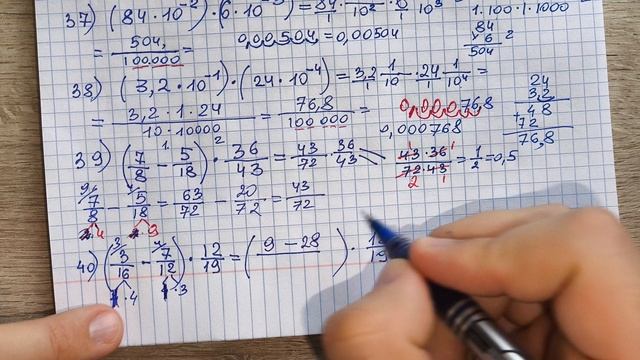 37) (84·10⁻²)·(6·10⁻³)= 84·1/10²·6·1/10³ 1·100·1·1000
= 504,/100.000 = 0,00504=0,00504
84
× 6
504
38) (3,2·10⁻¹)·(24·10⁻⁴)=3,2·1/10·24·1/10⁴=
= 3,2·1·24/10·10000 = 76,8/100 000 = 0,00076,8
0,000768
24
3,2
48
+72
76,8
39) (7/8 - 5/18)·36/43 = 43/72·36/43 43·36/72·43 = 1/2 = 0,5
7/8 - 5/18 = 63/72 - 20/72 = 43/72
40) (3/16 - 7/12)·12/19 = (9-28/ )·1